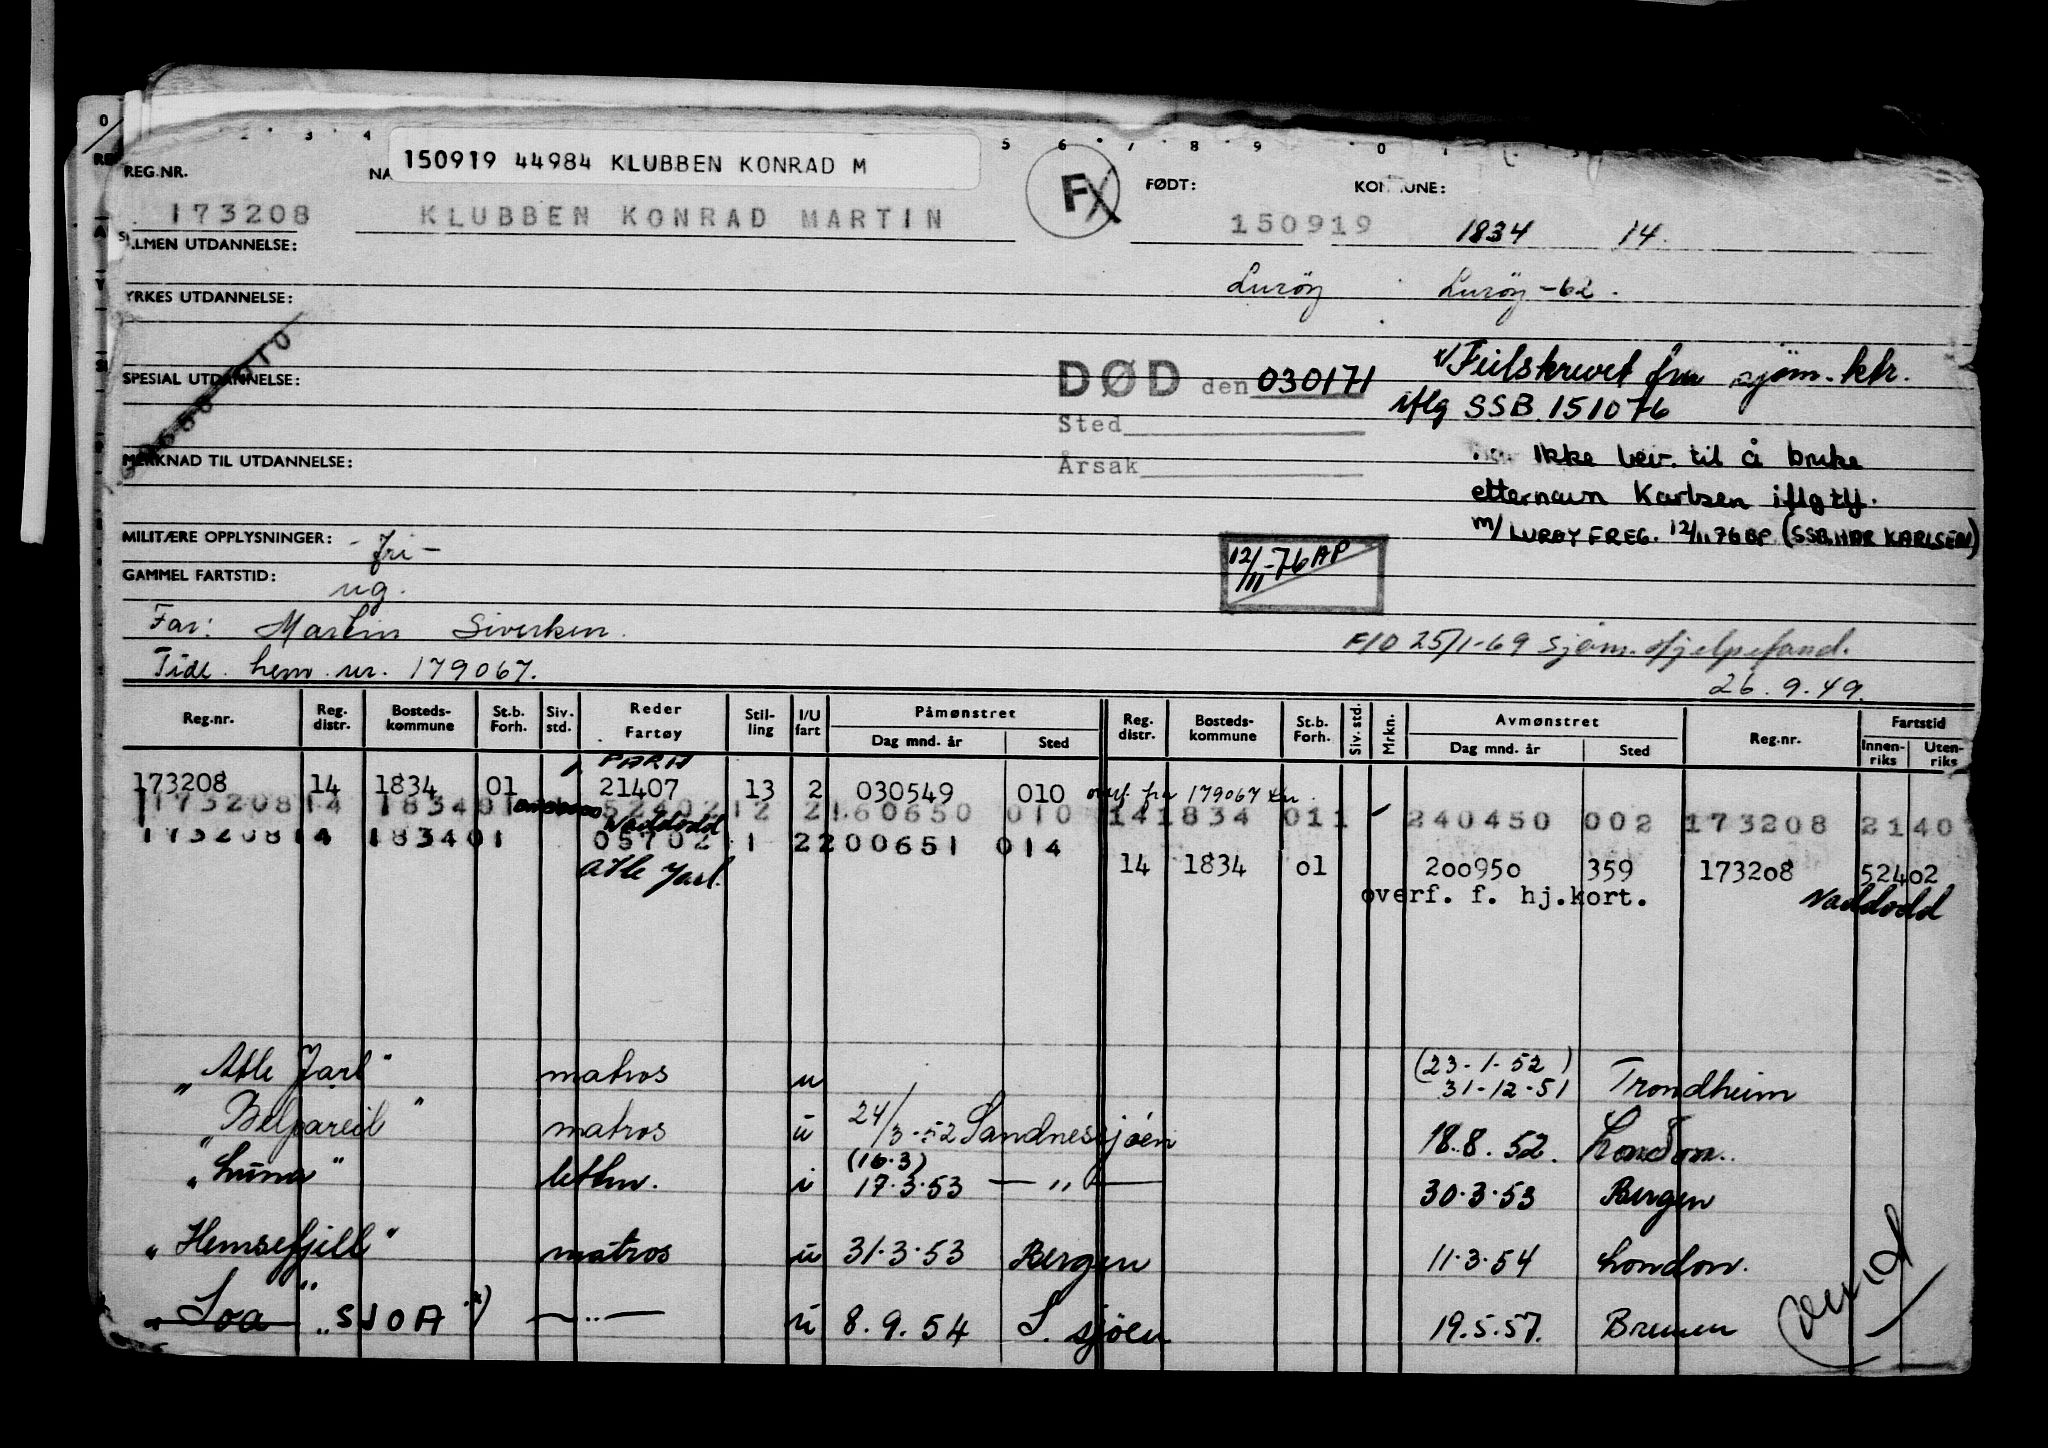 150919 44984 KLUBBEN KONRAD M
REG.NR. NA FØDT: KOMMUNE:
173208 KLUBBEN KONRAD MARTIN F 150919 1834 14.
ALLMEN UTDANNELSE:
Lurøy Lurøy -62.
YRKES UTDANNELSE:
SPESIAL UTDANNELSE:
DØD den 030171
Sted
Årsak
v/Feilskrevet fra sjøm.ktr.
iflg SSB 151076
Ikke bev. til å bruke
etternavn Karlsen iflg tlf.
m/ LURØY F REG. 12/11 76 AP (SSB HAR KARLSEN)
MERKNAD TIL UTDANNELSE:
MILITÆRE OPPLYSNINGER: - fri -
12/11-76 AP
GAMMEL FARTSTID: ug.
Far: Martin Sivertsen.
F10 25/1-69 Sjøm. Hjelpefond.
Tidl. hem. nr. 179067.
26.9.49.
Reg.nr. Reg. distr. Bosteds-kommune St.b. Forh. Siv. std. Reder Fartøy Stil-ling I/U fart Påmønstret Dag mnd. år Sted Reg. distr. Bosteds-kommune St.b. Forh. Siv. std. Mrkn. Avmønstret Dag mnd. år Sted Reg.nr. Fartstid Innen-riks Uten-riks
173208 14 1834 01 21407 13 2 030549 010 overf. fra 179067
173208 14 1834 01 52402 12 2 160650 010 14 1834 011 240450 002 173208 2140
Naddodd
173208 14 1834 01 05702 1 2 200651 014
Atle Jarl. 14 1834 01 200950 359 173208 52402
overf. f. hj.kort. Naddodd
"Atle Jarl" matros u (23-1-52) 31-12-51 Trondheim
"Belpareil" matros u 24/3-52 Sandnessjøen 18.8.52. London.
"Luna" lettm. i (16.3) 17.3.53 — " — 30.3.53 Bergen
"Hemsefjell" matros u 31.3.53 Bergen 11.3.54 London.
"Soa" "SJOA" *) — " — u 8.9.54 S. sjøen 19.5.57. Bremen